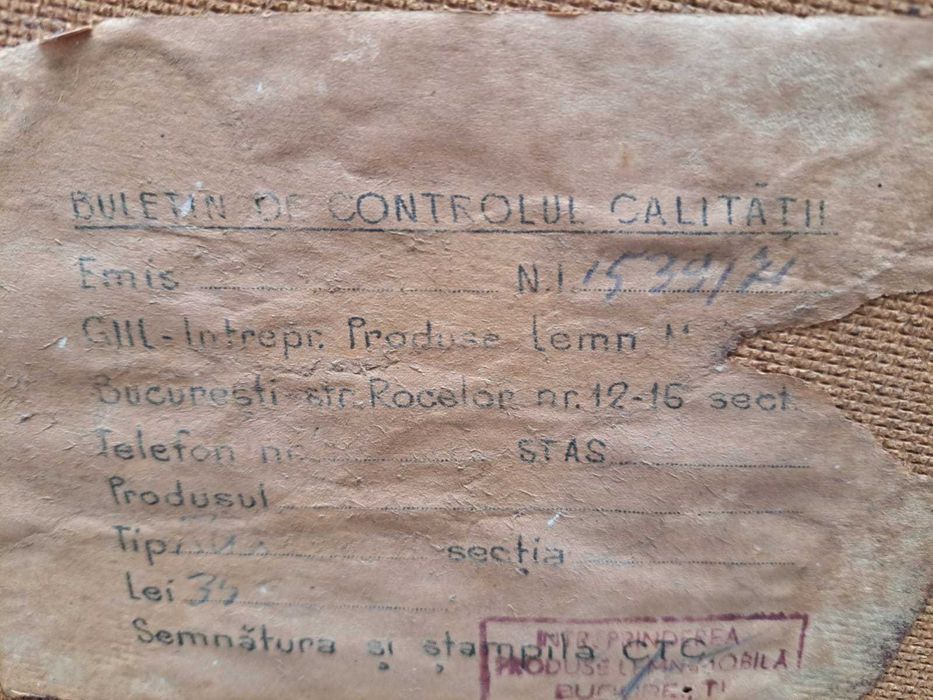 BULETIN DE CONTROLUL CALITĂȚII
Emis N.I. 1539/71
GIIL-Intrepr. Produse Lemn
București-str. Rocelor nr. 12-16 sect.
Telefon nr. STAS
Produsul
Tip secția
Lei
Semnătura și ștampila CTC
INTREPRINDEREA
PRODUSE LEMN MOBILĂ
BUCUREȘTI